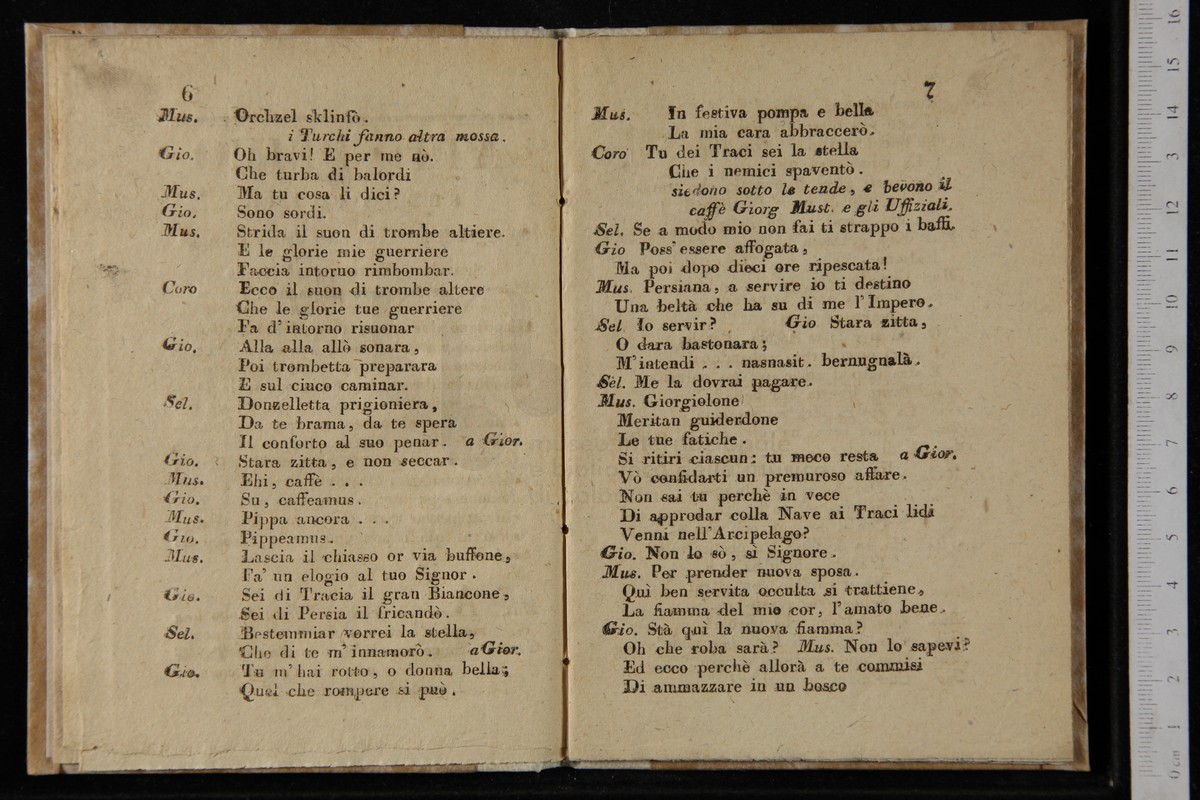 6
Mus. Orchzel sklinfò.
i Turchi fanno altra mossa.
Gio. Oh bravi! E per me nò.
Che turba di balordi
Mus. Ma tu cosa li dici?
Gio. Sono sordi.
Mus. Strida il suon di trombe altiere.
E le glorie mie guerriere
Faccia intorno rimbombar.
Coro Ecco il suon di trombe altere
Che le glorie tue guerriere
Fa d'intorno risuonar
Gio. Alla alla allò sonara,
Poi trombetta preparara
E sul ciuco caminar.
Sel. Donzelletta prigioniera,
Da te brama, da te spera
Il conforto al suo penar. a Gior.
Gio. Stara zitta, e non seccar.
Mus. Ehi, caffè . . .
Gio. Su, caffeamus.
Mus. Pippa ancora . . .
Gio. Pippeamus.
Mus. Lascia il chiasso or via buffone,
Fa' un elogio al tuo Signor.
Gio. Sei di Tracia il gran Biancone,
Sei di Persia il fricandò.
Sel. Bestemmiar vorrei la stella,
Che di te m'innamorò. a Gior.
Gio. Tu m'hai rotto, o donna bella;
Quel che rompere si può.
7
Mus. In festiva pompa e bella
La mia cara abbraccerò.
Coro Tu dei Traci sei la stella
Che i nemici spaventò.
siedono sotto le tende, e bevono il
caffè Giorg Must. e gli Uffiziali.
Sel. Se a modo mio non fai ti strappo i baffi.
Gio Poss'essere affogata,
Ma poi dopo dieci ore ripescata!
Mus. Persiana, a servire io ti destino
Una beltà che ha su di me l'Impero.
Sel Io servir? Gio Stara zitta,
O dara bastonara;
M'intendi . . . nasnasit. bernugnalà.
Sèl. Me la dovrai pagare.
Mus. Giorgiolone
Meritan guiderdone
Le tue fatiche.
Si ritiri ciascun: tu meco resta a Gior.
Vò confidarti un premuroso affare.
Non sai tu perchè in vece
Di approdar colla Nave ai Traci lidi
Venni nell'Arcipelago?
Gio. Non lo sò, si Signore.
Mus. Per prender nuova sposa.
Quì ben servita occulta si trattiene,
La fiamma del mio cor, l'amato bene.
Gio. Stà quì la nuova fiamma?
Oh che roba sarà? Mus. Non lo sapevi?
Ed ecco perchè allorà a te commisi
Di ammazzare in un bosco
16
15
14
13
12
11
10
9
8
7
6
5
4
3
2
1
0 cm